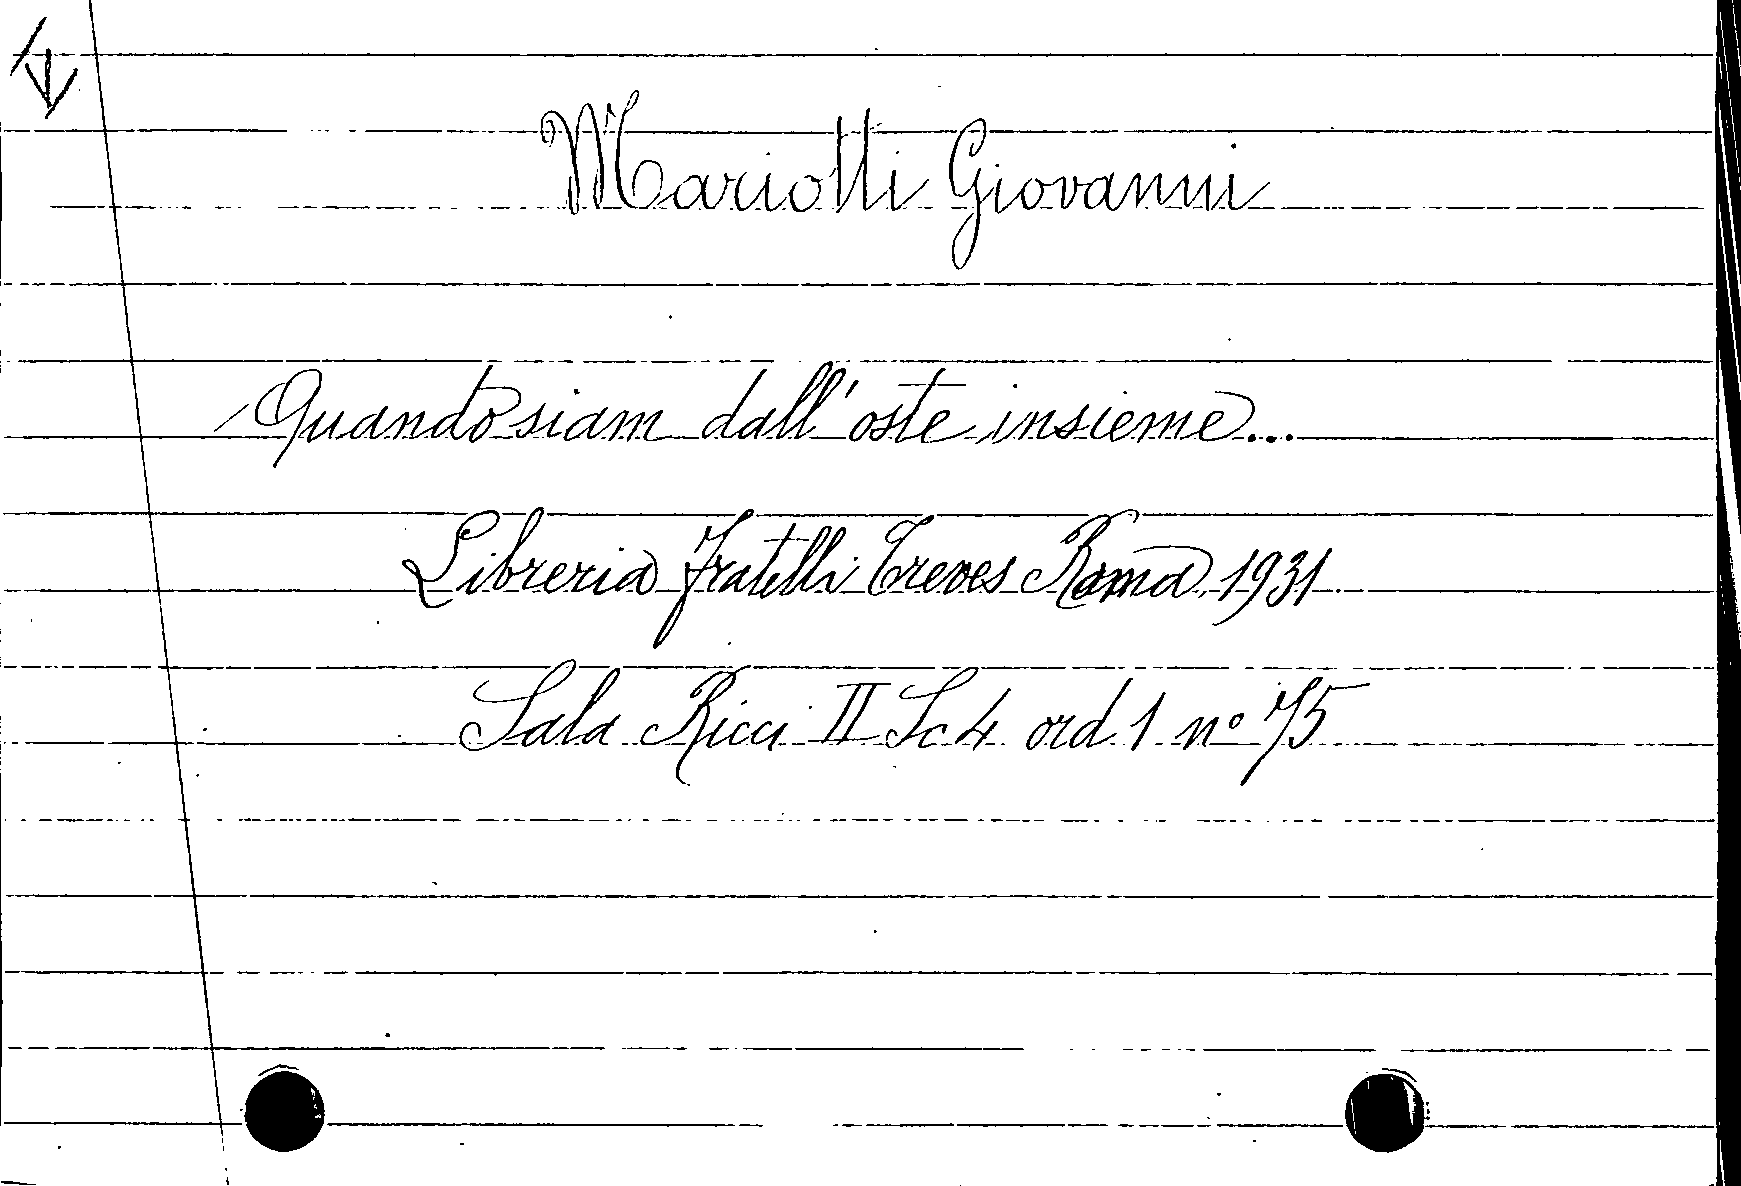 Mariotti Giovanni
Quando siam dall'oste insieme...
Libreria Fratelli Treves Roma 1931
Sala Ricci II Sc 4 ord 1 nº 75